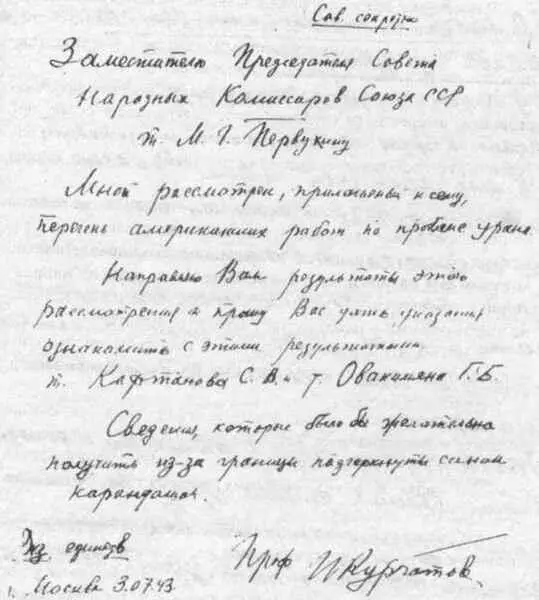 Сов. секретно
Заместителю Председателя Совета
Народных Комиссаров Союза ССР
т. М. Г. Первухину
Мной рассмотрен, приложенный к сему,
перечень американских работ по проблеме урана.
Направляю Вам результаты этого
рассмотрения и прошу Вас дать указания
ознакомить с этими результатами
т. Кафтанова С. В. и т. Овакимяна Г. Б.
Сведения, которые было бы желательно
получить из-за границы подчеркнуты синим
карандашом.
Экз. единств
Проф И Курчатов.
Москва 3.07.43